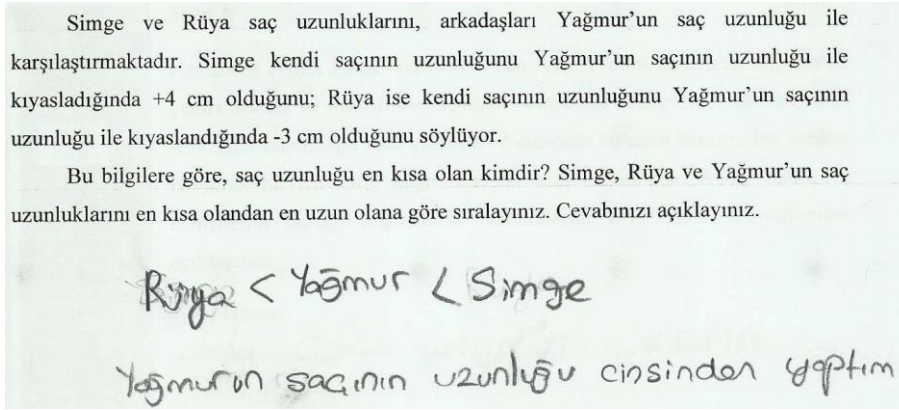 Simge ve Rüya saç uzunluklarını, arkadaşları Yağmur'un saç uzunluğu ile
karşılaştırmaktadır. Simge kendi saçının uzunluğunu Yağmur'un saçının uzunluğu ile
kıyasladığında +4 cm olduğunu; Rüya ise kendi saçının uzunluğunu Yağmur'un saçının
uzunluğu ile kıyaslandığında -3 cm olduğunu söylüyor.
Bu bilgilere göre, saç uzunluğu en kısa olan kimdir? Simge, Rüya ve Yağmur'un saç
uzunluklarını en kısa olandan en uzun olana göre sıralayınız. Cevabınızı açıklayınız.
Rüya < Yağmur < Simge
Yağmurun saçının uzunluğu cinsinden yaptım